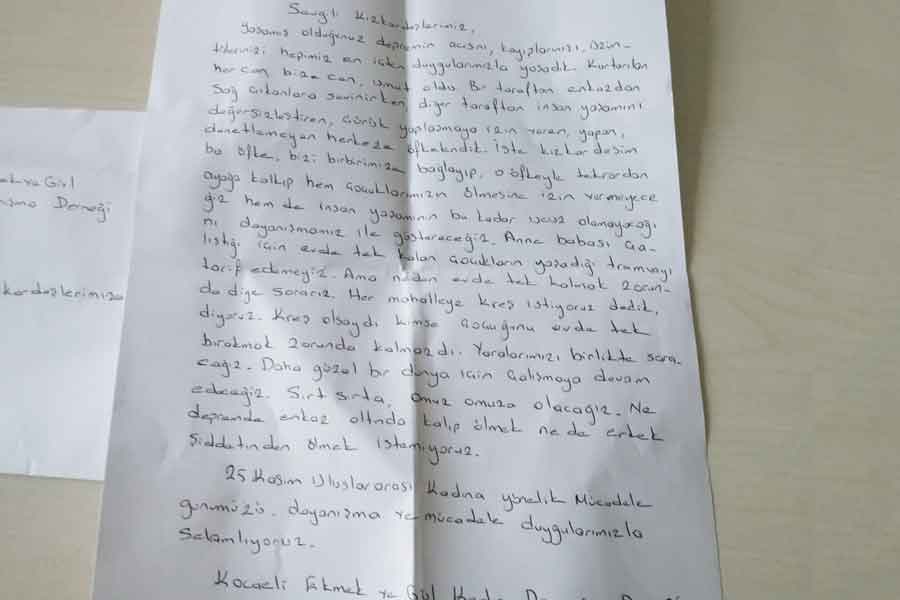 Sevgili Kızkardeşlerimiz,
Yaşamış olduğunuz depremin acısını, kayıplarınızı, üzün-
tülerinizi hepimiz en içten duygularımızla yaşadık. Kurtarılan
her can bize can, umut oldu. Bir taraftan enkazdan
sağ çıkanlara sevinirken diğer taraftan insan yaşamını
değersizleştiren, çürük yapılaşmaya izin veren, yapan,
denetlemeyen herkese öfkelendik. İşte kızkardeşim
bu öfke, bizi birbirimize bağlayıp, o öfkeyle tekrardan
ayağa kalkıp hem çocuklarımızın ölmesine izin vermeyece
ğiz hem de insan yaşamının bu kadar ucuz olamayacağı
nı dayanışmamız ile göstereceğiz. Anne babası ça-
lıştığı için evde tek kalan çocukların yaşadığı travmayı
tarif edemeyiz. Ama neden evde tek kalmak zorun-
da diye sorarız. Her mahalleye kreş istiyoruz dedik,
diyoruz. Kreş olsaydı kimse çocuğunu evde tek
bırakmak zorunda kalmazdı. Yaralarımızı birlikte sara-
cağız. Daha güzel bir dünya için çalışmaya devam
edeceğiz. Sırt sırta, omuz omuza olacağız. Ne
depremde enkaz altında kalıp ölmek ne de erkek
şiddetinden ölmek istemiyoruz.
25 Kasım Uluslararası Kadına yönelik Mücadele
günümüzü, dayanışma ve mücadele duygularımızla
Selamlıyoruz.
Kocaeli Ekmek ve Gül
ve Gül
Derneği
kardeşlerimize